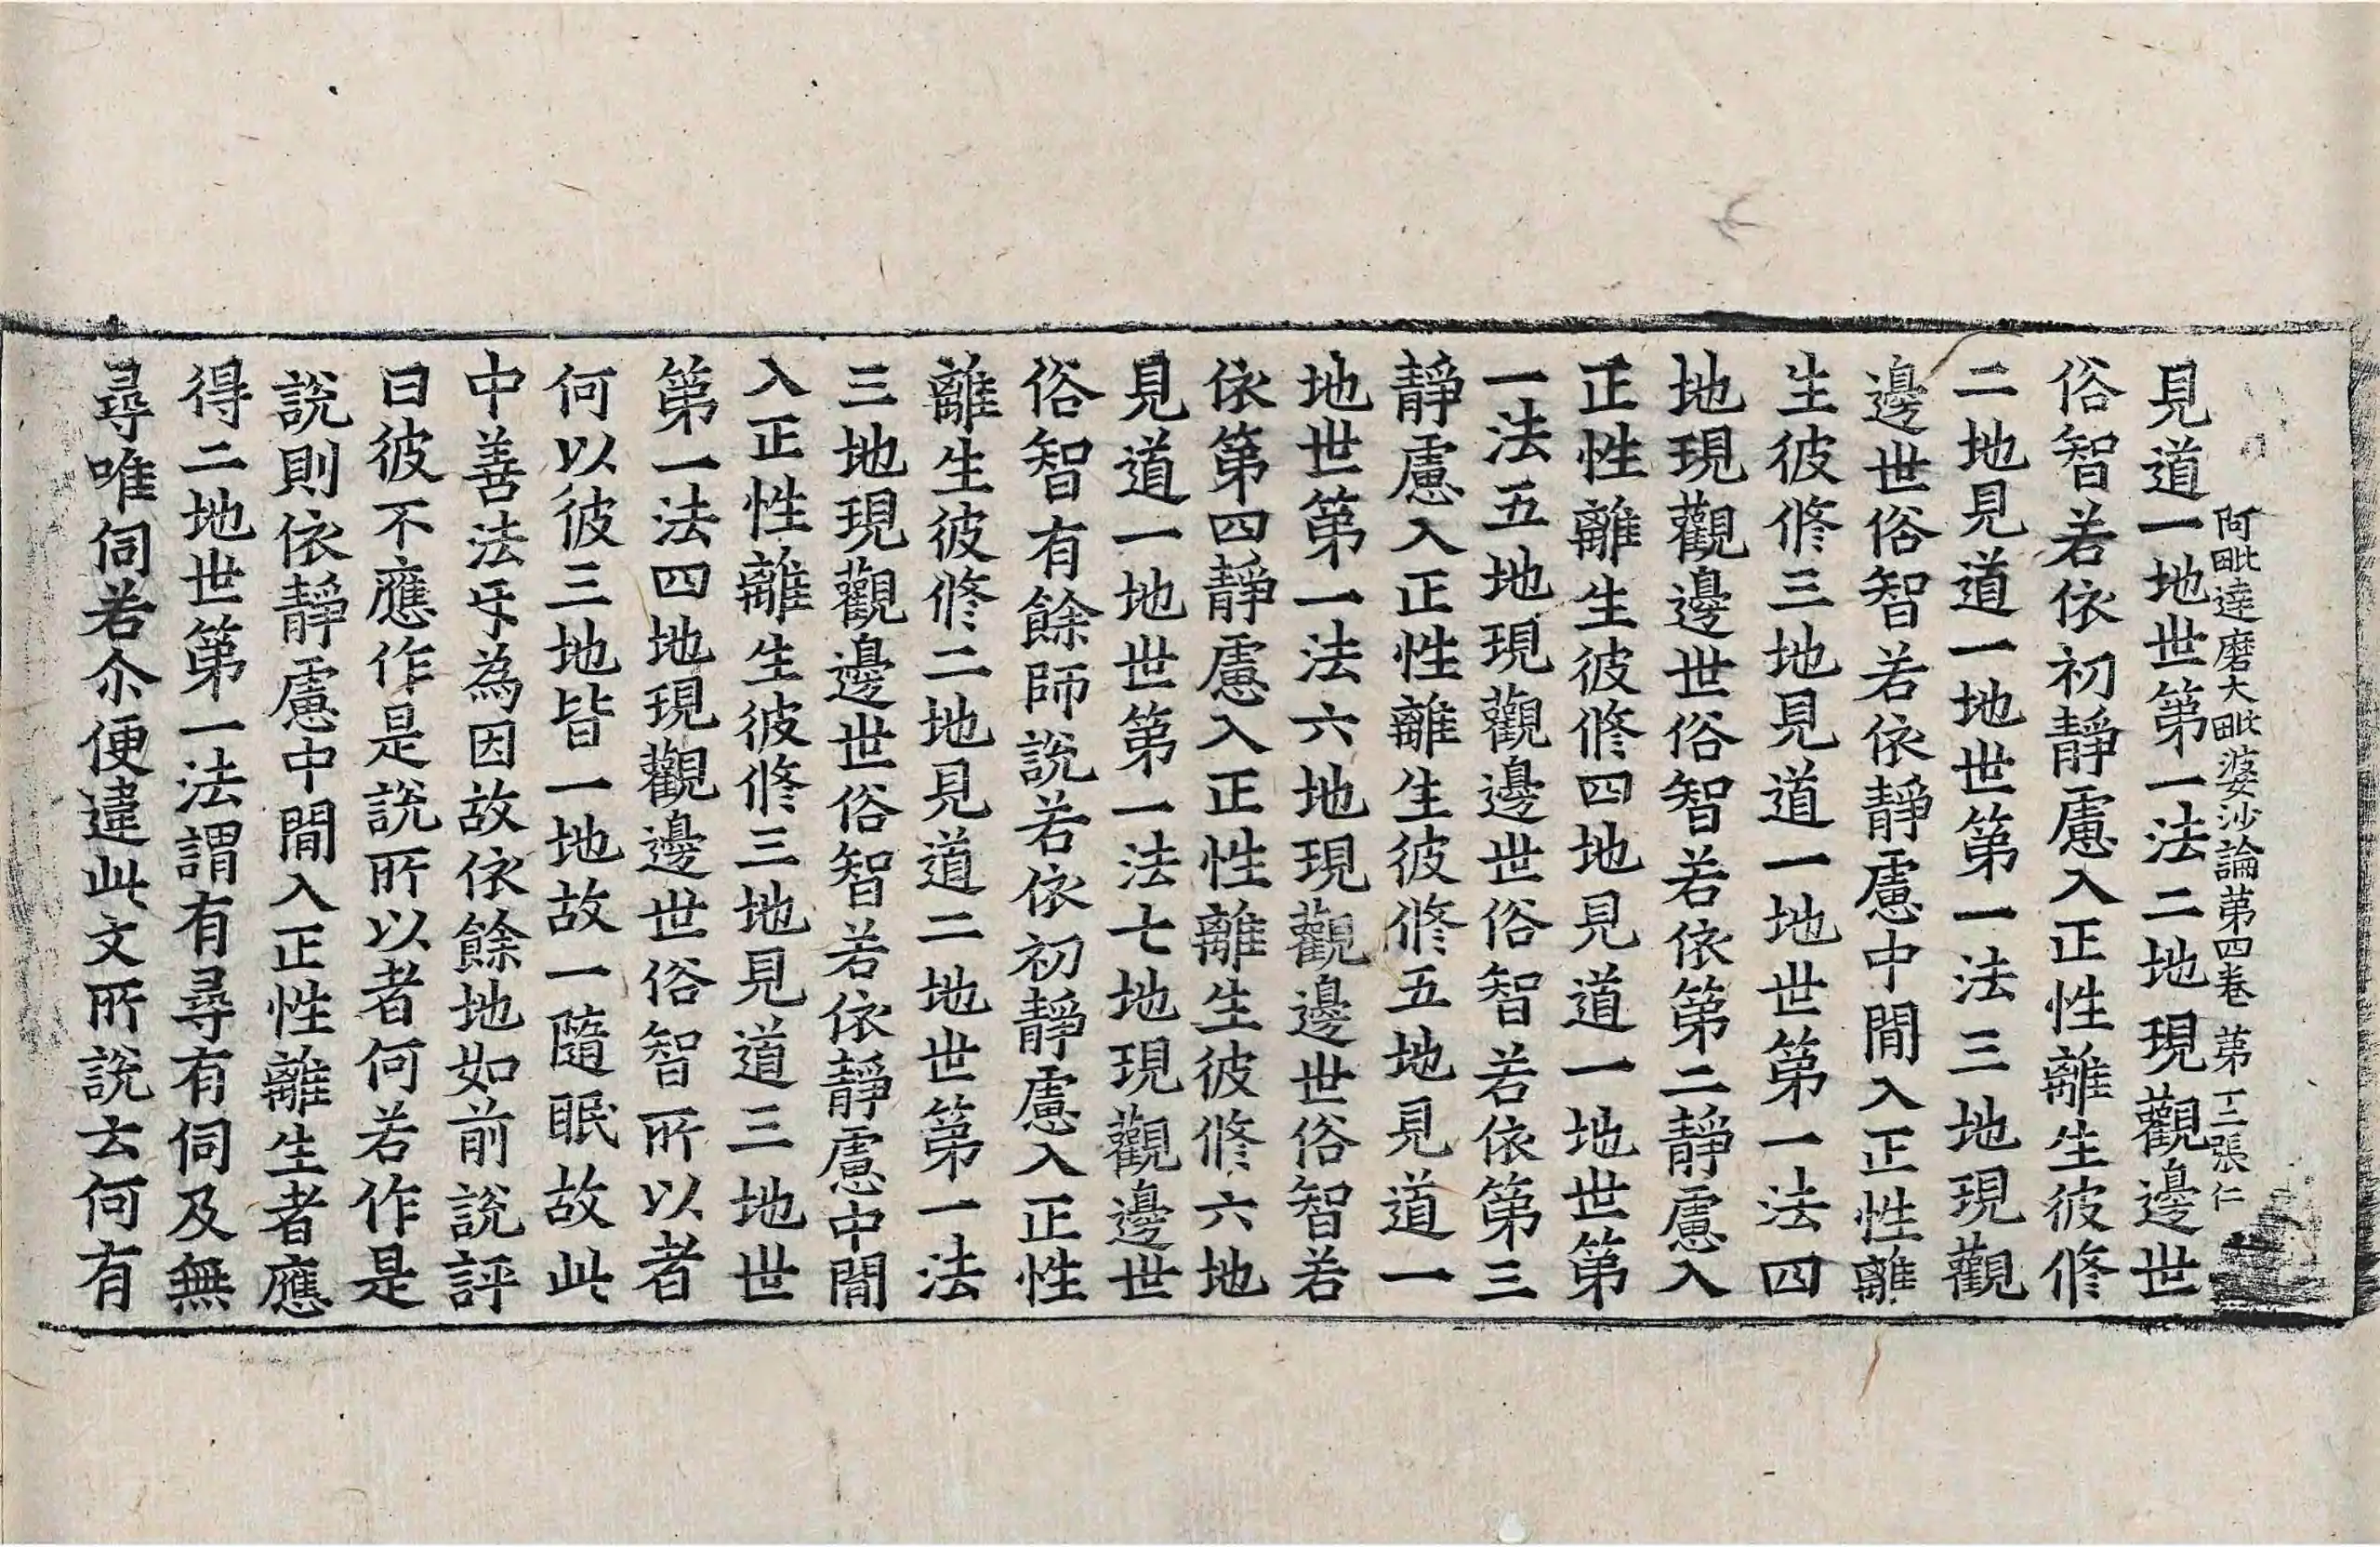 阿毗達磨大毗婆沙論第四卷 第十二張 仁
見道一地世第一法二地現觀邊世
俗智若依初靜慮入正性離生彼修
二地見道一地世第一法三地現觀
邊世俗智若依靜慮中間入正性離
生彼修三地見道一地世第一法四
地現觀邊世俗智若依第二靜慮入
正性離生彼修四地見道一地世第
一法五地現觀邊世俗智若依第三
靜慮入正性離生彼修五地見道一
地世第一法六地現觀邊世俗智若
依第四靜慮入正性離生彼修六地
見道一地世第一法七地現觀邊世
俗智有餘師說若依初靜慮入正性
離生彼修二地見道二地世第一法
三地現觀邊世俗智若依靜慮中間
入正性離生彼修三地見道三地世
第一法四地現觀邊世俗智所以者
何以彼三地皆一地故一隨眠故此
中善法㸦為因故依餘地如前說評
曰彼不應作是說所以者何若作是
說則依靜慮中間入正性離生者應
得二地世第一法謂有尋有伺及無
尋唯伺若尒便違此文所說去何有